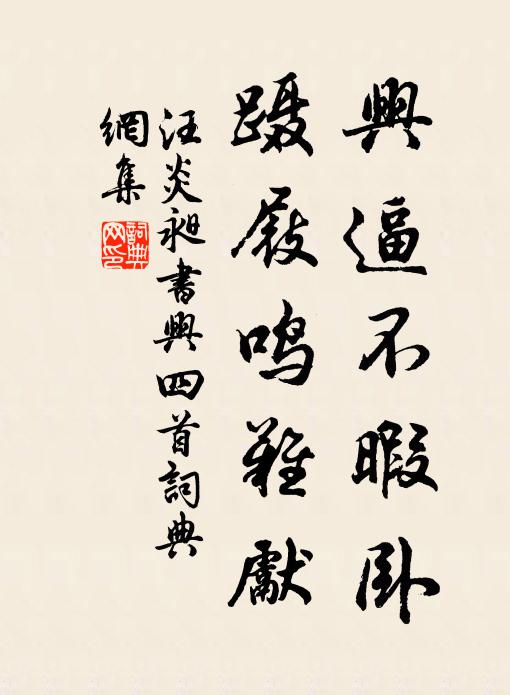 興逼不暇卧
蹑屐鸣難獻
汪炎昶書興四首詞典
網集
詞典网印